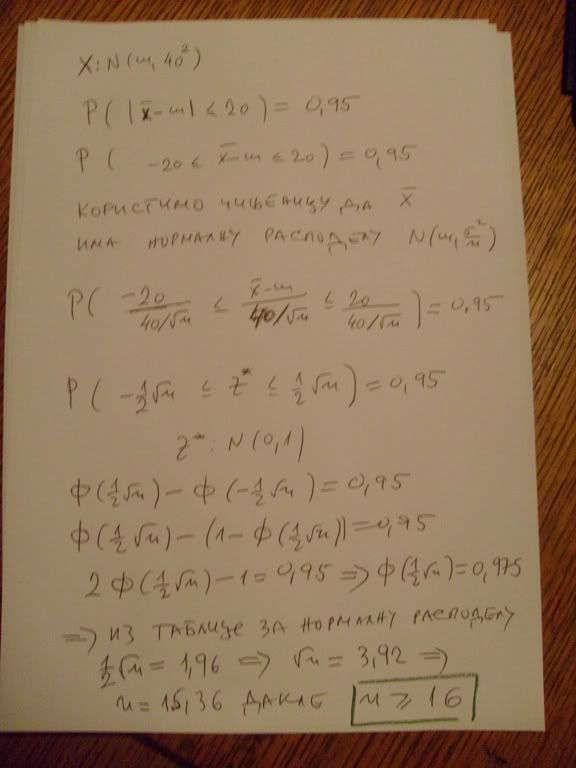 X:N(m,40²)
P(|x̄-m|≤20)=0,95
P(-20≤x̄-m≤20)=0,95
КОРИСТИМО ЧИЊЕНИЦУ ДА x̄
ИМА НОРМАЛНУ РАСПОДЕЛУ N(m,σ²/n)
P(-20/(40/√n) ≤ (x̄-m)/(40/√n) ≤ 20/(40/√n))=0,95
P(-1/2√n ≤ Z* ≤ 1/2√n)=0,95
Z*:N(0,1)
Φ(1/2√n)-Φ(-1/2√n)=0,95
Φ(1/2√n)-(1-Φ(1/2√n))=0,95
2Φ(1/2√n)-1=0,95 ⇒ Φ(1/2√n)=0,975
⇒ ИЗ ТАБЛИЦЕ ЗА НОРМАЛНУ РАСПОДЕЛУ
1/2√n=1,96 ⇒ √n=3,92 ⇒
n=15,36 ДАКЛЕ n≥16